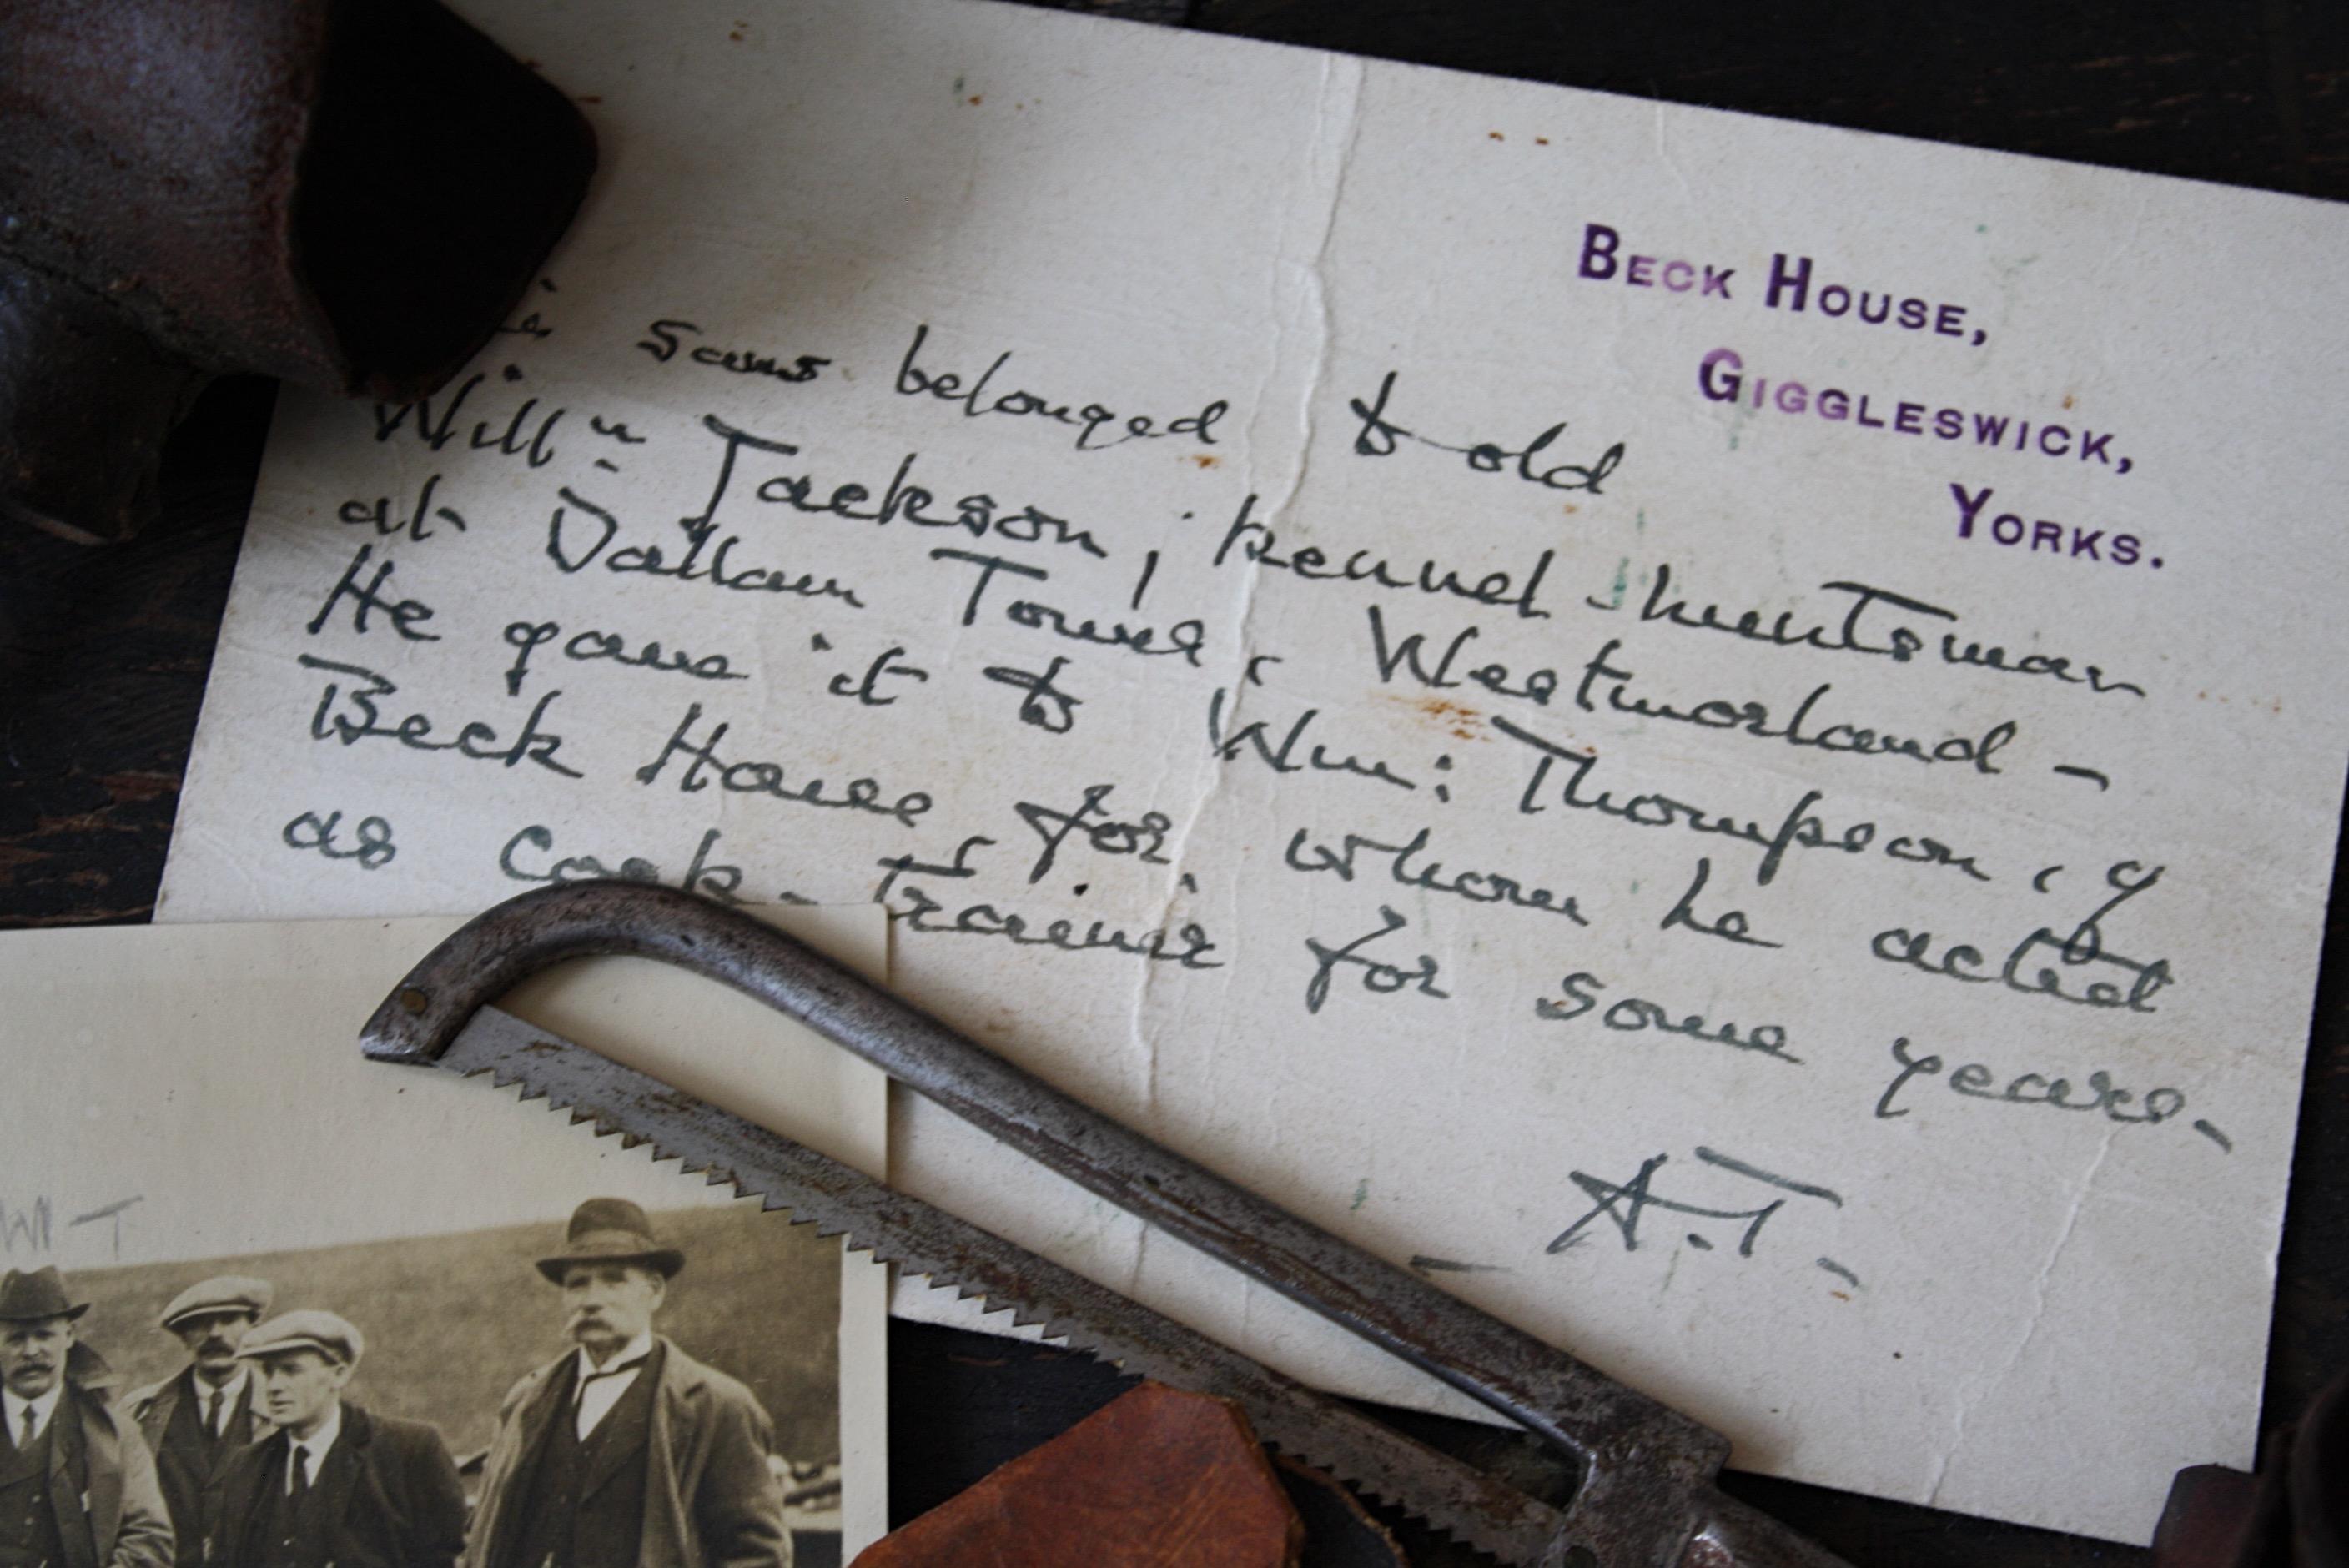 BECK HOUSE,
GIGGLESWICK,
YORKS.
saws belonged to old
Willm Jackson, kennel-huntsman
at Dallam Tower, Westmorland –
He gave it to Wm: Thompson, of
Beck House, for whom he acted
as cock-trainer for some years –
– A.T. –
W T